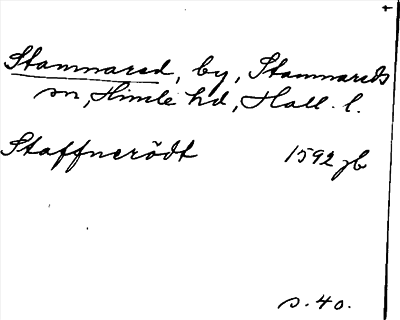 Stamnared, by, Stamnareds
sn, Himle hd, Hall. l.
Staffnerödt 1592 jb
s. 40.